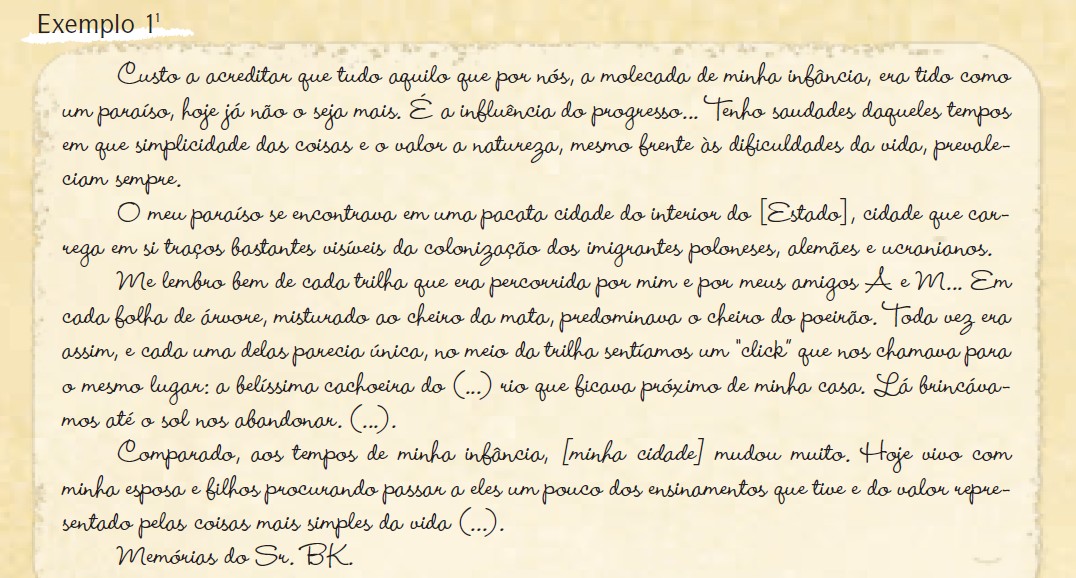 Exemplo 1¹
Custo a acreditar que tudo aquilo que por nós, a molecada de minha infância, era tido como
um paraíso, hoje já não o seja mais. É a influência do progresso... Tenho saudades daqueles tempos
em que simplicidade das coisas e o valor a natureza, mesmo frente às dificuldades da vida, prevale-
ciam sempre.
O meu paraíso se encontrava em uma pacata cidade do interior do [Estado], cidade que car-
rega em si traços bastantes visíveis da colonização dos imigrantes poloneses, alemães e ucranianos.
Me lembro bem de cada trilha que era percorrida por mim e por meus amigos A e M... Em
cada folha de árvore, misturado ao cheiro da mata, predominava o cheiro do poeirão. Toda vez era
assim, e cada uma delas parecia única, no meio da trilha sentíamos um "click" que nos chamava para
o mesmo lugar: a belíssima cachoeira do (...) rio que ficava próximo de minha casa. Lá brincáva-
mos até o sol nos abandonar. (...).
Comparado, aos tempos de minha infância, [minha cidade] mudou muito. Hoje vivo com
minha esposa e filhos procurando passar a eles um pouco dos ensinamentos que tive e do valor repre-
sentado pelas coisas mais simples da vida (...).
Memórias do Sr. BK.